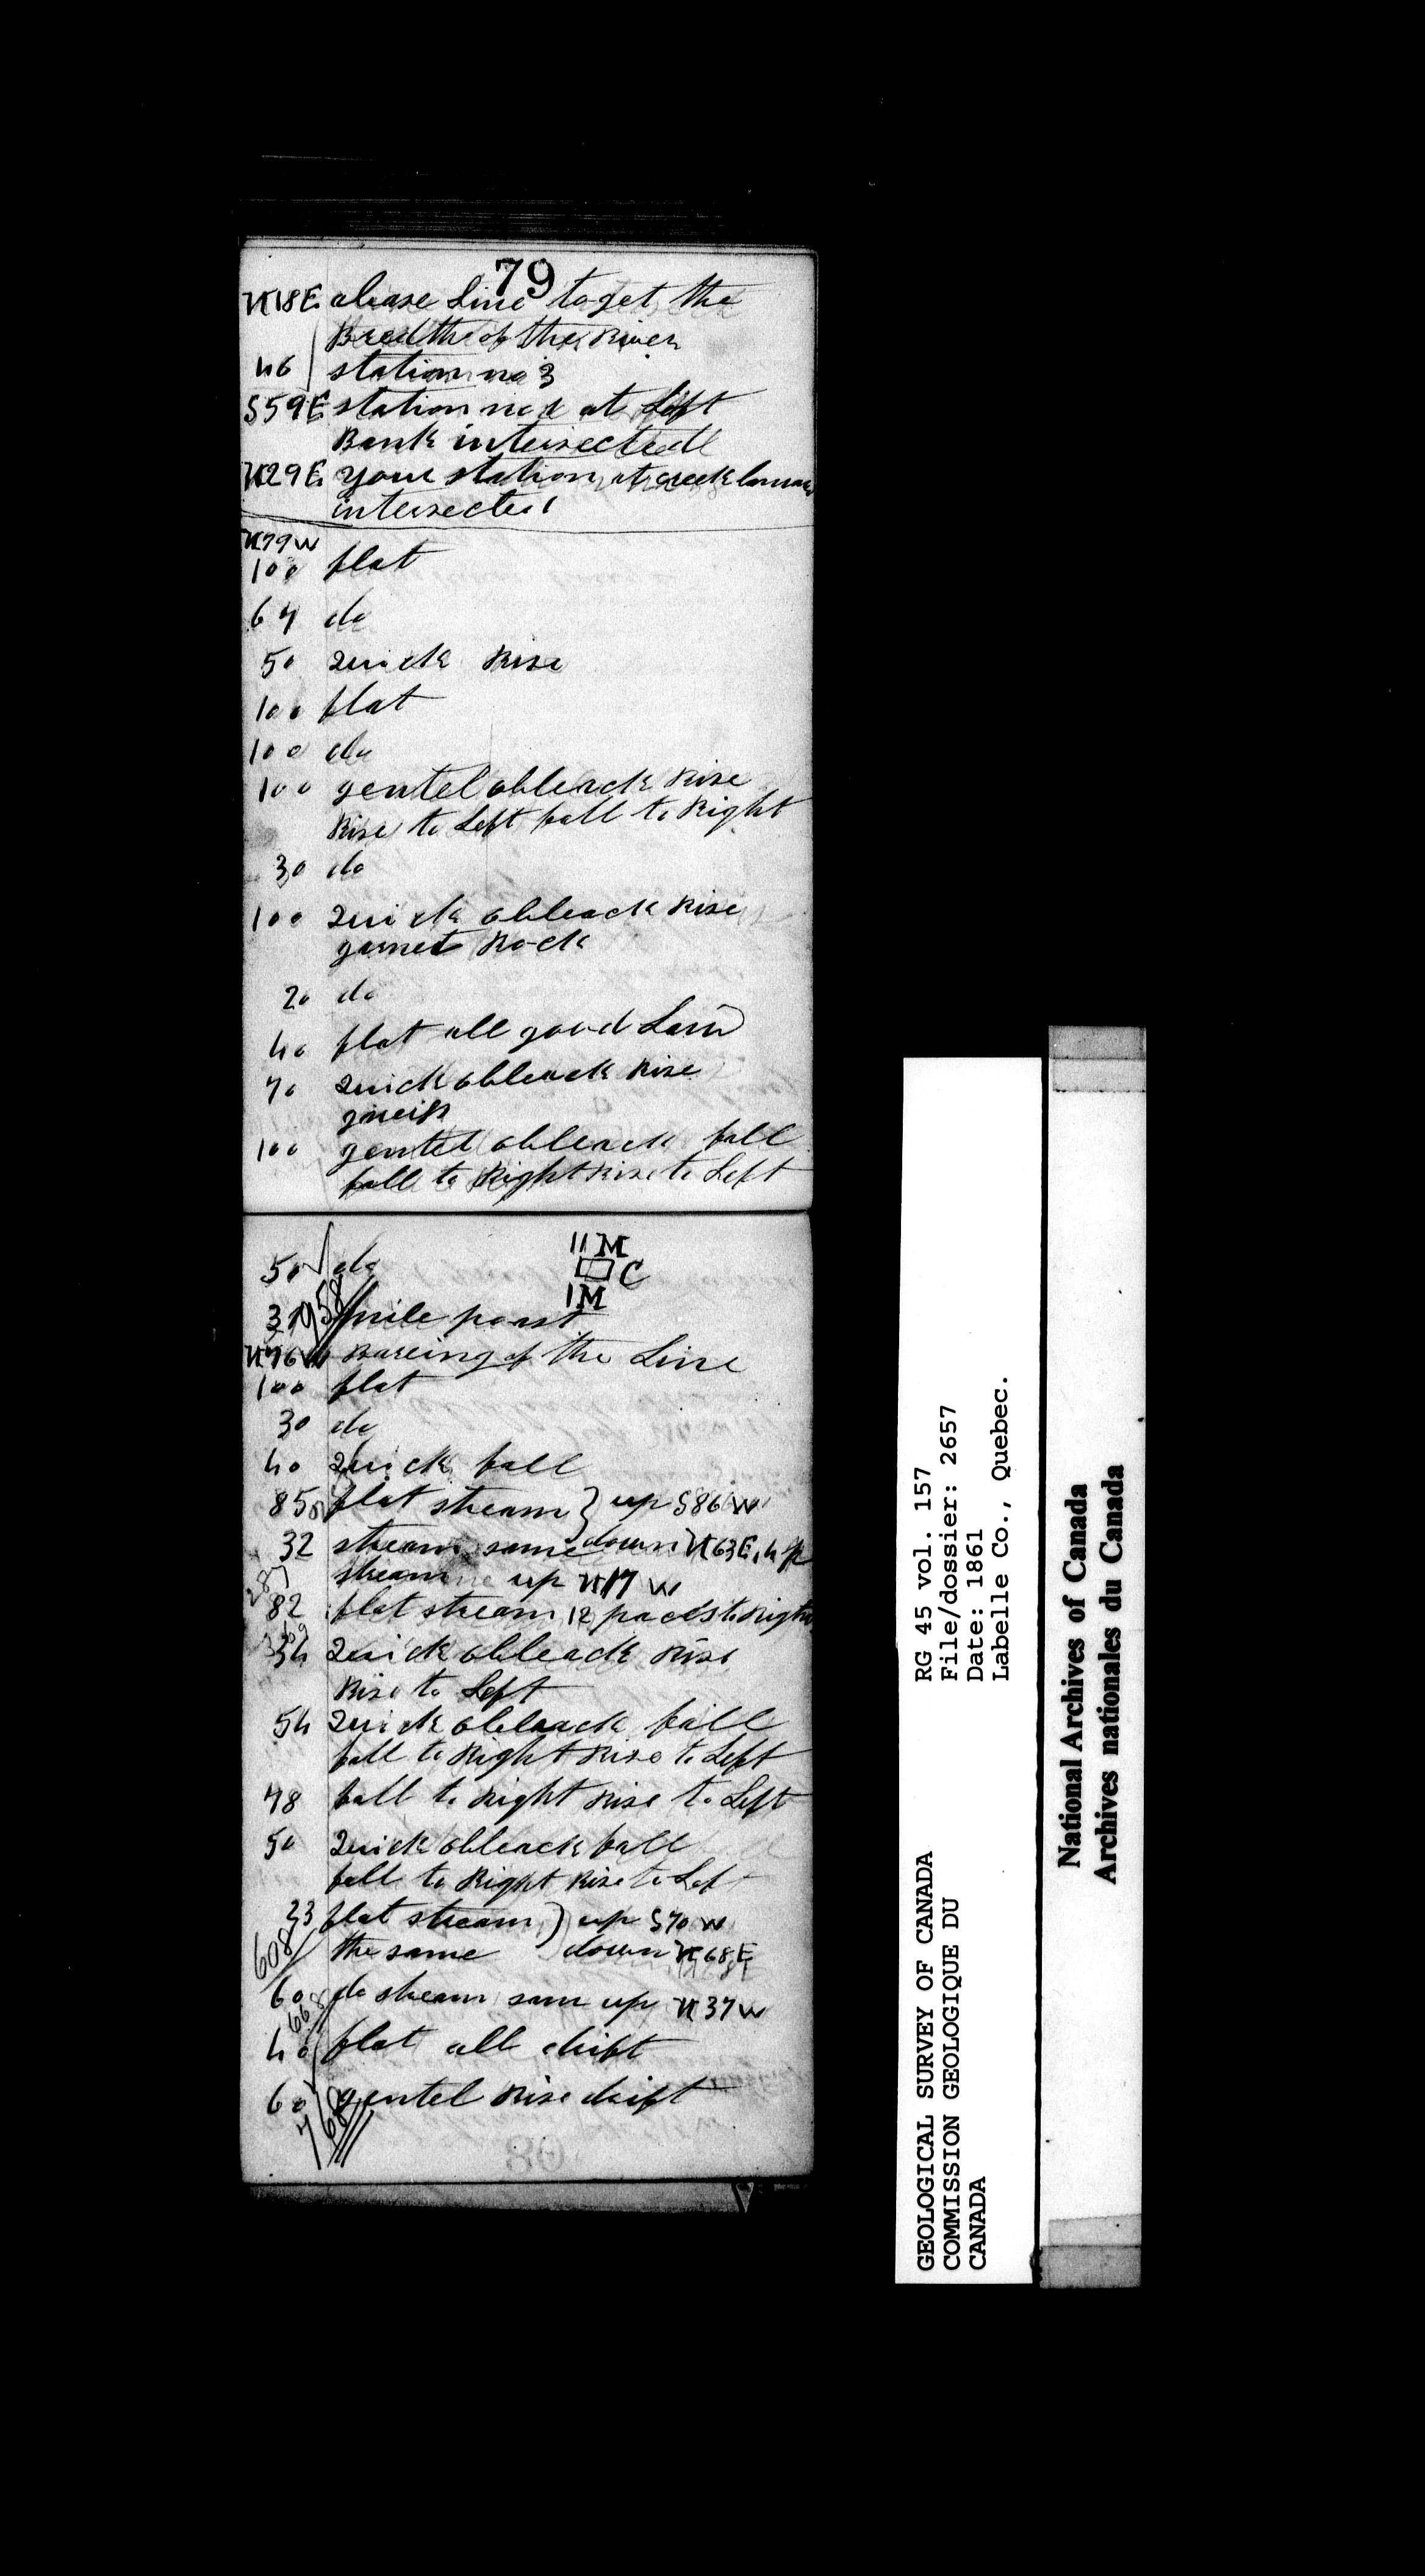 79
N18E abase Line to get the
Bredth of the River
46 station no 3
S59E station no 1 at Left
Bank intersectedl
N29E your station at creek
intersected
N79W
100 flat
64 do
50 Quick Rise
100 flat
100 do
100 gentel obleack Rise
Rise to Left fall to Right
30 do
100 Quick obleack Rise
garnet Rock
20 do
40 flat all good Land
70 Quick obleack Rise
gneiss
100 gentel obleack fall
fall to Right Rise to Left
11 M
50 do
C
1 M
958
mile poast
N76W Bareing of the Line
100 flat
30 do
40 Quick fall
85 flat stream } up S86W
32 stream same down N63E
stream up N17W
287
82 flat stream 12 paces to Right
369
34 Quick obleack Rise
Rise to Left
54 Quick obleack fall
fall to Right Rise to Left
48 fall to Right Rise to Left
50 Quick obleack fall
fall to Right Rise to Left
23 flat stream ) up S70W
608 the same down N68E
60 do stream sam up N37W
668
40 flat all drift
60 gentel Rise drift
768
80
GEOLOGICAL SURVEY OF CANADA RG 45 vol. 157
COMMISSION GEOLOGIQUE DU File/dossier: 2657
CANADA Date: 1861
Labelle Co., Quebec.
National Archives of Canada
Archives nationales du Canada